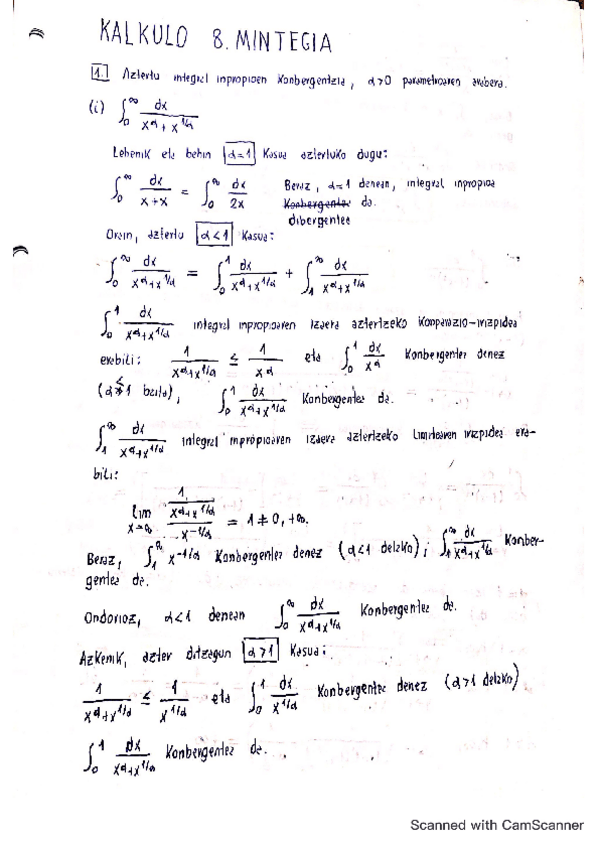 KALKULO 8. MINTEGIA
1. Aztertu integral inpropioen konbergentzia, α>0 parametroaren arabera.
(i) ∫₀^∞ dx / (x^α + x^{1/α})
Lehenik eta behin α=1 kasua aztertuko dugu:
∫₀^∞ dx/(x+x) = ∫₀^∞ dx/2x Beraz, α=1 denean, integral inpropioa
Konbergentea da.
dibergentea
Orain, aztertu α<1 kasua:
∫₀^∞ dx/(x^α+x^{1/α}) = ∫₀^1 dx/(x^α+x^{1/α}) + ∫₁^∞ dx/(x^α+x^{1/α})
∫₀^1 dx/(x^α+x^{1/α}) integral inpropioaren izaera aztertzeko konparazio-irizpidea
erabili: 1/(x^α+x^{1/α}) ≤ 1/x^α eta ∫₀^1 dx/x^α konbergentea denez
(α<1 baita), ∫₀^1 dx/(x^α+x^{1/α}) konbergentea da.
∫₁^∞ dx/(x^α+x^{1/α}) integral inpropioaren izaera aztertzeko limitearen irizpidea era-
bili:
lim x→∞ (1/(x^α+x^{1/α}))/(x^{-1/α}) = 1 ≠ 0, +∞.
Beraz, ∫₁^∞ x^{-1/α} konbergentea denez (α<1 delako), ∫₁^∞ dx/(x^α+x^{1/α}) konber-
gentea da.
Ondorioz, α<1 denean ∫₀^∞ dx/(x^α+x^{1/α}) konbergentea da.
Azkenik, azter ditzagun α>1 kasua:
1/(x^α+x^{1/α}) ≤ 1/x^{1/α} eta ∫₀^1 dx/x^{1/α} konbergentea denez (α>1 delako)
∫₀^1 dx/(x^α+x^{1/α}) konbergentea da.
Scanned with CamScanner